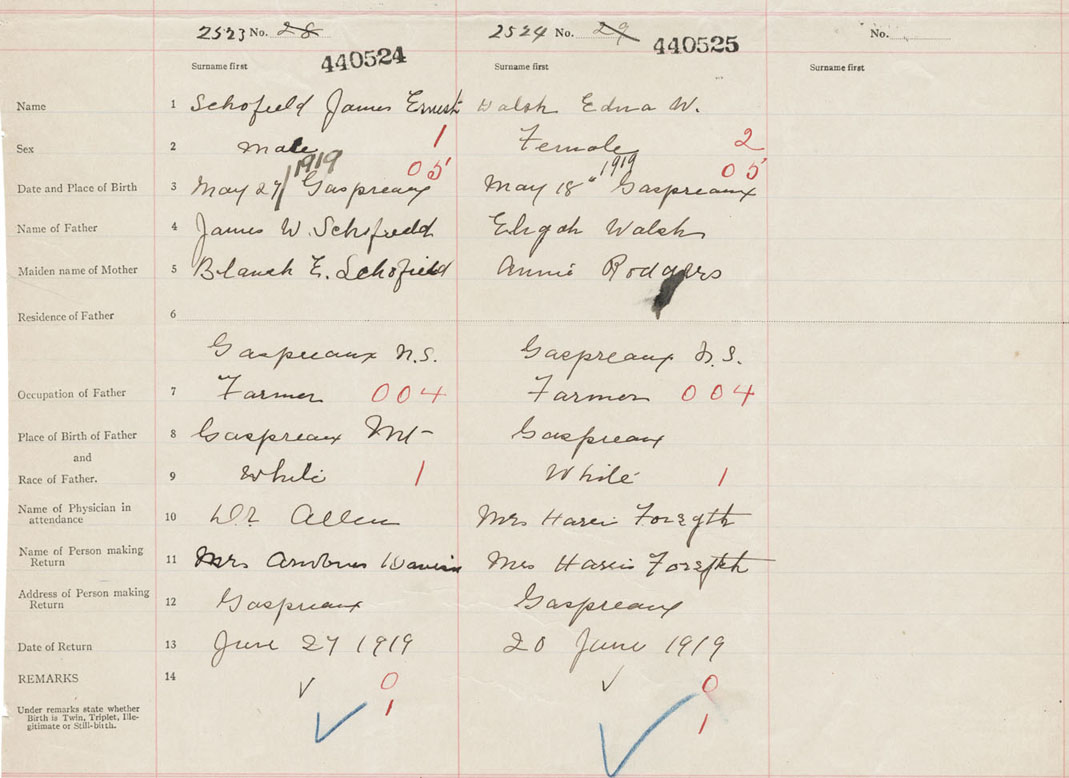 2523 No. 28 2524 No. 29 No.
440524 440525
Surname first Surname first Surname first
Name 1 Schofield James Ernest Walsh Edna W.
Sex 2 Male 1 Female 2
1919 05 1919 05
Date and Place of Birth 3 May 27 Gaspreaux May 18" Gaspreaux
Name of Father 4 James W. Schofield Eligah Walsh
Maiden name of Mother 5 Blanch E. Schofield Annie Rodgers
Residence of Father 6
Gaspreaux N.S. Gaspreaux N.S.
Occupation of Father 7 Farmer 004 Farmer 004
Place of Birth of Father 8 Gaspreaux Mt Gaspreaux
and
Race of Father. 9 White 1 White 1
Name of Physician in
attendance 10 Dr Allen Mrs Forsyth
Name of Person making
Return 11 Mrs Mrs Forsyth
Address of Person making
Return 12 Gaspreaux Gaspreaux
Date of Return 13 June 27 1919 20 June 1919
REMARKS 14 0 0
Under remarks state whether 1 1
Birth is Twin, Triplet, Ille-
gitimate or Still-birth.